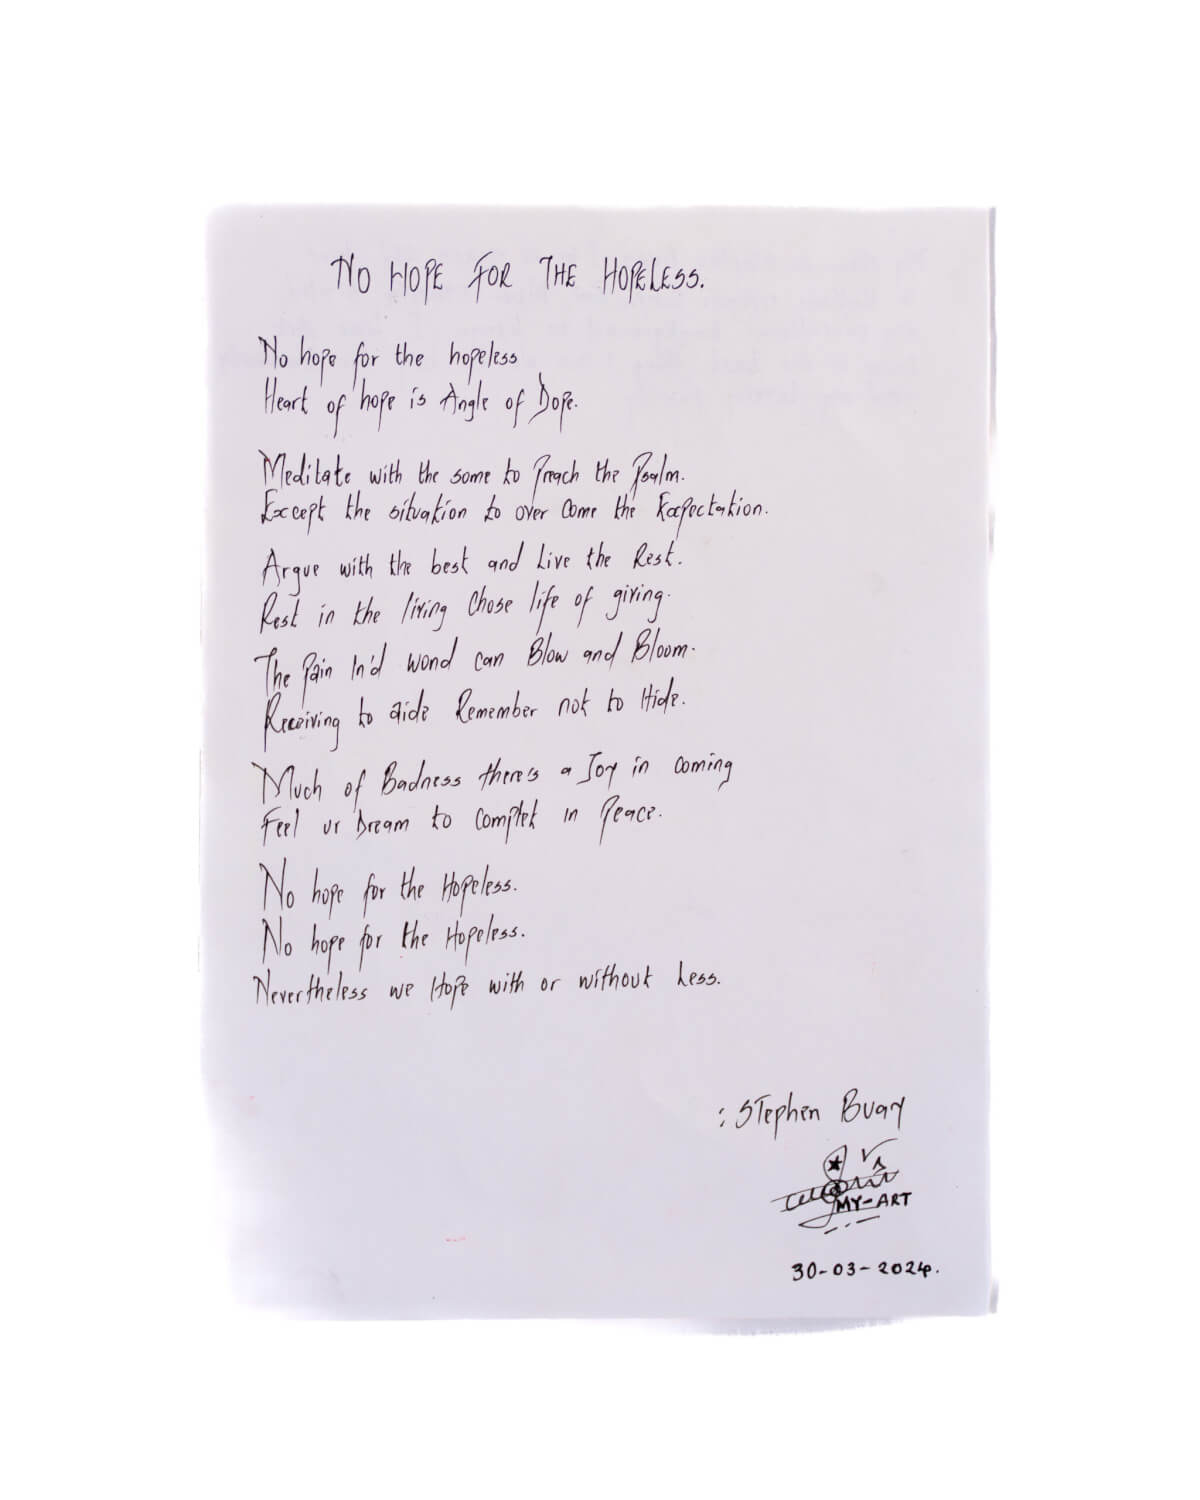 NO HOPE FOR THE HOPELESS.
No hope for the hopeless
Heart of hope is Angle of Dope.
Meditate with the some to Preach the Psalm.
Except the situation to over come the Expectation.
Argue with the best and Live the Rest.
Rest in the living Chose life of giving.
The Pain In'd wond can Blow and Bloom.
Receiving to aide Remember not to Hide.
Much of Badness there's a Joy in coming
Feel ur Dream to complet in Peace.
No hope for the Hopeless.
No hope for the Hopeless.
Nevertheless we Hope with or without Less.
: Stephen Buay
MY-ART
30-03-2024.